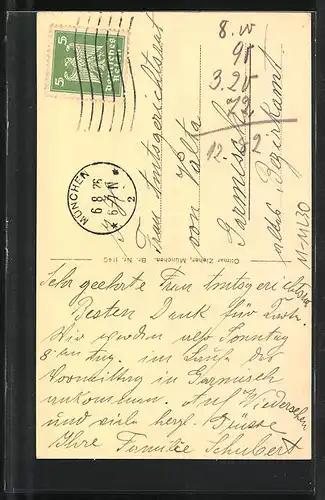 5 Deutsches Reich 5
MÜNCHEN
6.8.26
2
8.00
91
3.20
72
12.
Frau Amtsgerichtsrat
von Valta
Garmisch
Ottmar Zieher, München. Br. Nr. 1140
11-1130
Sehr geehrte Frau Amtsgerichtsrat
Besten Dank für
Wir werden also Sonntag
8ten Aug. im Laufe des
Vormittag in Garmisch
ankommen. Auf Wiedersehen
und viele herzl. Grüsse
Ihre Familie Schubert